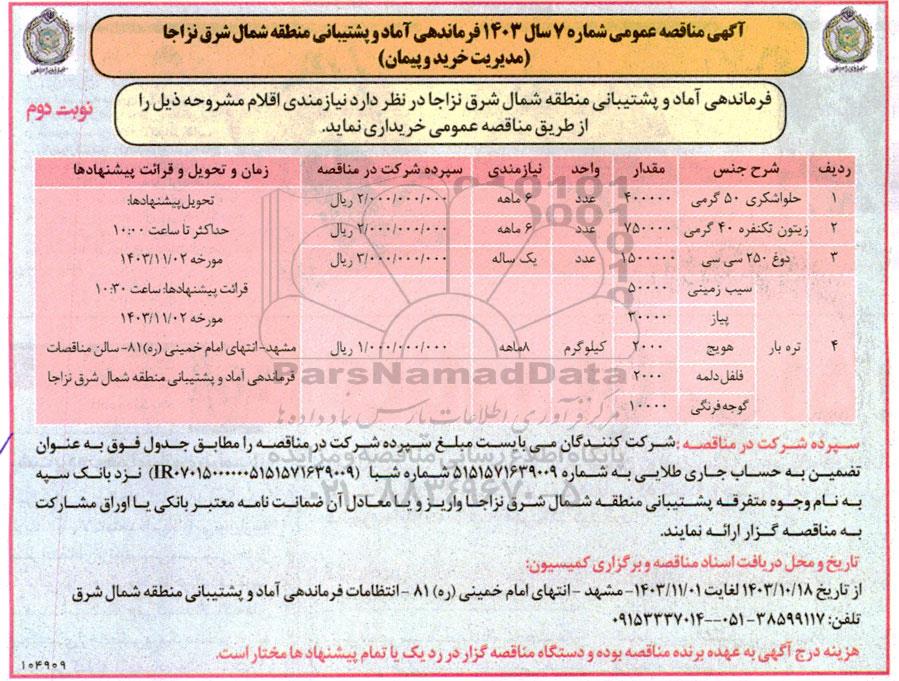 آگهی مناقصه عمومی شماره ۷ سال ۱۴۰۳ فرماندهی آماد و پشتیبانی منطقه شمال شرق نزاجا
(مدیریت خرید و پیمان)
نوبت دوم
فرماندهی آماد و پشتیبانی منطقه شمال شرق نزاجا در نظر دارد نیازمندی اقلام مشروحه ذیل را
از طریق مناقصه عمومی خریداری نماید.
ردیف شرح جنس مقدار واحد نیازمندی سپرده شرکت در مناقصه زمان و تحویل و قرائت پیشنهادها
۱ حلواشکری ۵۰ گرمی ۴۰۰۰۰۰ عدد ۶ ماهه ۲/۰۰۰/۰۰۰/۰۰۰ ریال تحویل پیشنهادها:
۲ زیتون تکنفره ۴۰ گرمی ۷۵۰۰۰۰ عدد ۶ ماهه ۲/۰۰۰/۰۰۰/۰۰۰ ریال حداکثر تا ساعت ۱۰:۰۰
۳ دوغ ۲۵۰ سی سی ۱۵۰۰۰۰۰ عدد یک ساله ۳/۰۰۰/۰۰۰/۰۰۰ ریال مورخه ۱۴۰۳/۱۱/۰۲
سیب زمینی ۵۰۰۰۰ قرائت پیشنهادها: ساعت ۱۰:۳۰
پیاز ۳۰۰۰۰ مورخه ۱۴۰۳/۱۱/۰۲
۴ تره بار هویج ۲۰۰۰ کیلوگرم ۸ماهه ۱/۰۰۰/۰۰۰/۰۰۰ ریال مشهد- انتهای امام خمینی (ره)۸۱- سالن مناقصات
فلفل دلمه ۲۰۰۰ فرماندهی آماد و پشتیبانی منطقه شمال شرق نزاجا
گوجه فرنگی ۱۰۰۰۰
ParsNamadData
مرکز فرآوری اطلاعات پارس نماد داده ها
پایگاه اطلاع رسانی مناقصه و مزایده
۰۲۱-۸۸۳۴۹۶۷۰-۵
سپرده شرکت در مناقصه: شرکت کنندگان می بایست مبلغ سپرده شرکت در مناقصه را مطابق جدول فوق به عنوان
تضمین به حساب جاری طلایی به شماره ۵۱۵۱۵۷۱۶۳۹۰۰۹ شماره شبا (IR۰۷۰۱۵۰۰۰۰۰۰۵۱۵۱۵۷۱۶۳۹۰۰۹) نزد بانک سپه
به نام وجوه متفرقه پشتیبانی منطقه شمال شرق نزاجا واریز و یا معادل آن ضمانت نامه معتبر بانکی یا اوراق مشارکت
به مناقصه گزار ارائه نمایند.
تاریخ و محل دریافت اسناد مناقصه و برگزاری کمیسیون:
از تاریخ ۱۴۰۳/۱۰/۱۸ لغایت ۱۴۰۳/۱۱/۰۱- مشهد - انتهای امام خمینی (ره) ۸۱ - انتظامات فرماندهی آماد و پشتیبانی منطقه شمال شرق
تلفن: ۳۸۵۹۹۱۱۷-۰۵۱--۰۹۱۵۳۳۳۷۰۱۴
هزینه درج آگهی به عهده برنده مناقصه بوده و دستگاه مناقصه گزار در رد یک یا تمام پیشنهادها مختار است.
۱۰۴۹۰۹